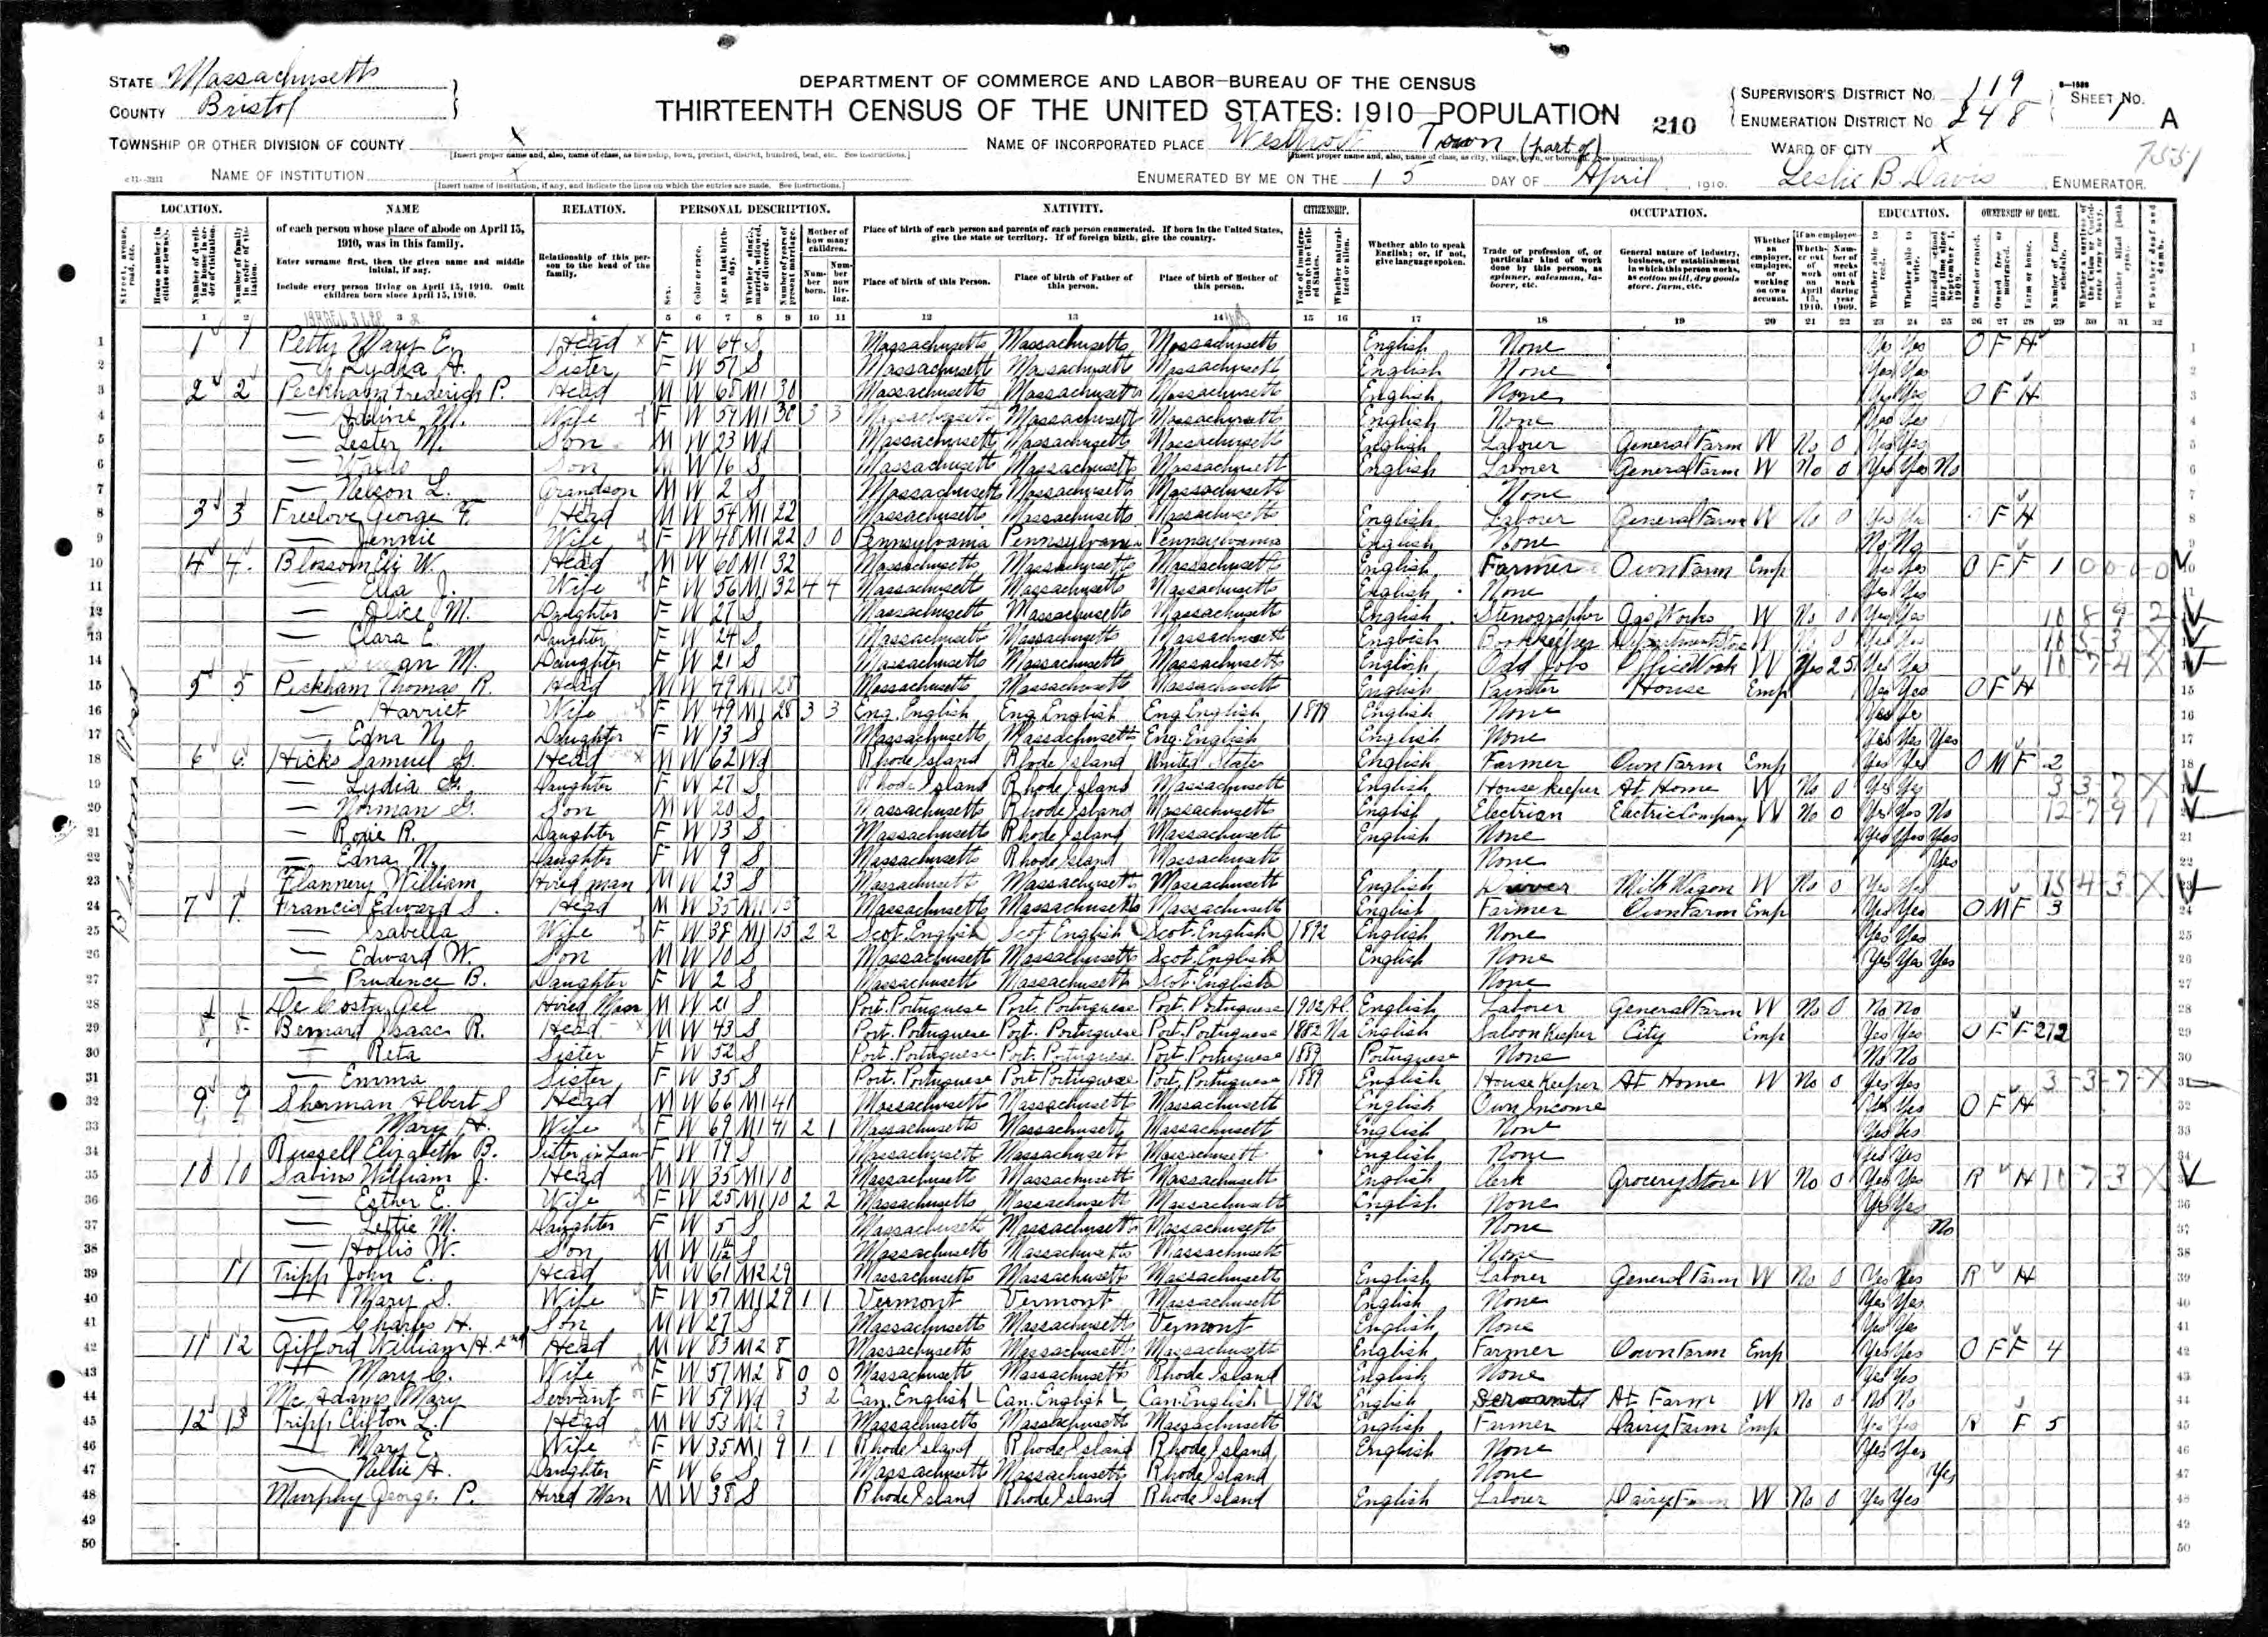 DEPARTMENT OF COMMERCE AND LABOR—BUREAU OF THE CENSUS
THIRTEENTH CENSUS OF THE UNITED STATES: 1910—POPULATION
210
STATE Massachusetts
COUNTY Bristol
SUPERVISOR'S DISTRICT No. 119
ENUMERATION DISTRICT No. 248
SHEET No. 1 A
TOWNSHIP OR OTHER DIVISION OF COUNTY X
NAME OF INCORPORATED PLACE Westport Town (part of)
WARD OF CITY X
7551
NAME OF INSTITUTION X
ENUMERATED BY ME ON THE 15 DAY OF April, 1910. Leslie B. Davis, ENUMERATOR.
LOCATION. NAME RELATION. PERSONAL DESCRIPTION. NATIVITY. CITIZENSHIP. OCCUPATION. EDUCATION. OWNERSHIP OF HOME.
of each person whose place of abode on April 15, 1910, was in this family.
Enter surname first, then the given name and middle initial, if any.
Include every person living on April 15, 1910. Omit children born since April 15, 1910.
Relationship of this person to the head of the family.
Place of birth of each person and parents of each person enumerated. If born in the United States, give the state or territory. If of foreign birth, give the country.
Place of birth of this Person. Place of birth of Father of this person. Place of birth of Mother of this person.
Whether able to speak English; or, if not, give language spoken.
Trade or profession of, or particular kind of work done by this person, as spinner, salesman, laborer, etc.
General nature of industry, business, or establishment in which this person works, as cotton mill, dry goods store, farm, etc.
Blossom Road
1 1 1 Petty Mary E. Head F W 64 S Massachusetts Massachusetts Massachusetts English None Yes Yes O F H
2 — Lydia A. Sister F W 57 S Massachusetts Massachusetts Massachusetts English None Yes Yes
3 2 2 Peckham Frederick P. Head M W 68 M1 30 Massachusetts Massachusetts Massachusetts English None Yes Yes O F H
4 — Adline M. Wife F W 54 M1 30 3 3 Massachusetts Massachusetts Massachusetts English None Yes Yes
5 — Lester M. Son M W 23 Wd Massachusetts Massachusetts Massachusetts English Laborer General Farm W No 0 Yes Yes
6 — Waldo Son M W 16 S Massachusetts Massachusetts Massachusetts English Laborer General Farm W No 0 Yes Yes No
7 — Nelson L. Grandson M W 2 S Massachusetts Massachusetts Massachusetts None
8 3 3 Freelove George F. Head M W 54 M1 22 Massachusetts Massachusetts Massachusetts English Laborer General Farm W No 0 Yes Yes F H
9 — Jennie Wife F W 48 M1 22 0 0 Pennsylvania Pennsylvania Pennsylvania English None No No
10 4 4 Blossom Eli W. Head M W 60 M1 32 Massachusetts Massachusetts Massachusetts English Farmer Own Farm Emp Yes Yes O F F 1 0 0 0 0
11 — Ella J. Wife F W 56 M1 32 4 4 Massachusetts Massachusetts Massachusetts English None Yes Yes
12 — Alice M. Daughter F W 27 S Massachusetts Massachusetts Massachusetts English Stenographer Gas Works W No 0 Yes Yes
13 — Clara E. Daughter F W 24 S Massachusetts Massachusetts Massachusetts English Bookkeeper Department Store W No 0 Yes Yes
14 — M. Daughter F W 21 S Massachusetts Massachusetts Massachusetts English Odd Jobs Office Work W Yes 25 Yes Yes 10 7 4 X
15 5 5 Peckham Thomas R. Head M W 49 M1 28 Massachusetts Massachusetts Massachusetts English Painter House Emp Yes Yes O F H
16 — Harriet Wife F W 49 M1 28 3 3 Eng. English Eng. English Eng. English English None
17 — Edna N. Daughter F W 13 S Massachusetts Massachusetts Eng. English English None Yes Yes Yes
18 6 6 Hicks Samuel G. Head M W 62 Wd Rhode Island Rhode Island United State English Farmer Own Farm Emp Yes Yes O M F 2
19 — Lydia G. Daughter F W 27 S Rhode Island Rhode Island Massachusetts English House keeper At Home W No 0 Yes Yes 3 3 7 X
20 — Norman G. Son M W 20 S Massachusetts Rhode Island Massachusetts English Electrian Electric Company W No 0 Yes Yes No 12 7 9 1
21 — Rosie R. Daughter F W 13 S Massachusetts Rhode Island Massachusetts English None Yes Yes Yes
22 — Edna N. Daughter F W 9 S Massachusetts Rhode Island Massachusetts None Yes
23 Flannery William Hired man M W 23 S Massachusetts Massachusetts Massachusetts English Driver Milk Wagon W No 0 Yes Yes 15 4 3 X
24 7 7 Francis Edward S. Head M W 35 M1 15 Massachusetts Massachusetts Massachusetts English Farmer Own Farm Emp Yes Yes O M F 3
25 — Isabella Wife F W 38 M1 15 2 2 Scot. English Scot. English Scot. English 1892 English None Yes Yes
26 — Edward W. Son M W 10 S Massachusetts Massachusetts Scot. English English None Yes Yes Yes
27 — Prudence B. Daughter F W 2 S Massachusetts Massachusetts Scot. English None
28 De Costa Gel Hired Man M W 21 S Port. Portuguese Port. Portuguese Port. Portuguese 1902 Al English Laborer General Farm W No 0 No No
29 8 8 Bernard Isaac R. Head M W 43 S Port. Portuguese Port. Portuguese Port. Portuguese 1882 Na English Saloon Keeper City Emp Yes Yes O F F 212
30 — Reta Sister F W 52 S Port. Portuguese Port. Portuguese Port. Portuguese 1889 Portuguese None No No
31 — Emma Sister F W 35 S Port. Portuguese Port. Portuguese Port. Portuguese 1889 English House Keeper At Home W No 0 Yes Yes 3 3 7 X
32 9 9 Sherman Albert S Head M W 66 M1 41 Massachusetts Massachusetts Massachusetts English Own Income Yes Yes O F H
33 — Mary H. Wife F W 69 M1 41 2 1 Massachusetts Massachusetts Massachusetts English None Yes Yes
34 Russell Elizabeth B. Sister in Law F W 79 S Massachusetts Massachusetts Massachusetts English None Yes Yes
35 10 10 Sabins William J. Head M W 35 M1 10 Massachusetts Massachusetts Massachusetts English Clerk Grocery Store W No 0 Yes Yes R H 10 7 3 X
36 — Esther E. Wife F W 25 M1 10 2 2 Massachusetts Massachusetts Massachusetts English None Yes Yes
37 — Lettie M. Daughter F W 5 S Massachusetts Massachusetts Massachusetts None No
38 — Hollis W. Son M W S Massachusetts Massachusetts Massachusetts None
39 11 Tripp John E. Head M W 61 M2 29 Massachusetts Massachusetts Massachusetts English Laborer General Farm W No 0 Yes Yes R H
40 — Mary S. Wife F W 57 M1 29 1 1 Vermont Vermont Massachusetts English None Yes Yes
41 — Charles H. Son M W 27 S Massachusetts Massachusetts Vermont English None Yes Yes
42 11 12 Gifford William H. 2nd Head M W 83 M2 8 Massachusetts Massachusetts Massachusetts English Farmer Own Farm Emp Yes Yes O F F 4
43 — Mary C. Wife F W 57 M2 8 0 0 Massachusetts Massachusetts Rhode Island English None Yes Yes
44 Mc Adams Mary Servant F W 59 Wd 3 2 Can. English Can. English Can. English 1902 English Servant At Farm W No 0 No No
45 12 13 Tripp Clifton L. Head M W 53 M2 9 Massachusetts Massachusetts Massachusetts English Farmer Dairy Farm Emp Yes Yes R F 5
46 — Mary E. Wife F W 35 M1 9 1 1 Rhode Island Rhode Island Rhode Island English None Yes Yes
47 — Nettie A. Daughter F W 6 S Massachusetts Massachusetts Rhode Island None Yes
48 Murphy George P. Hired Man M W 38 S Rhode Island Rhode Island Rhode Island English Laborer Dairy Farm W No 0 Yes Yes
49
50